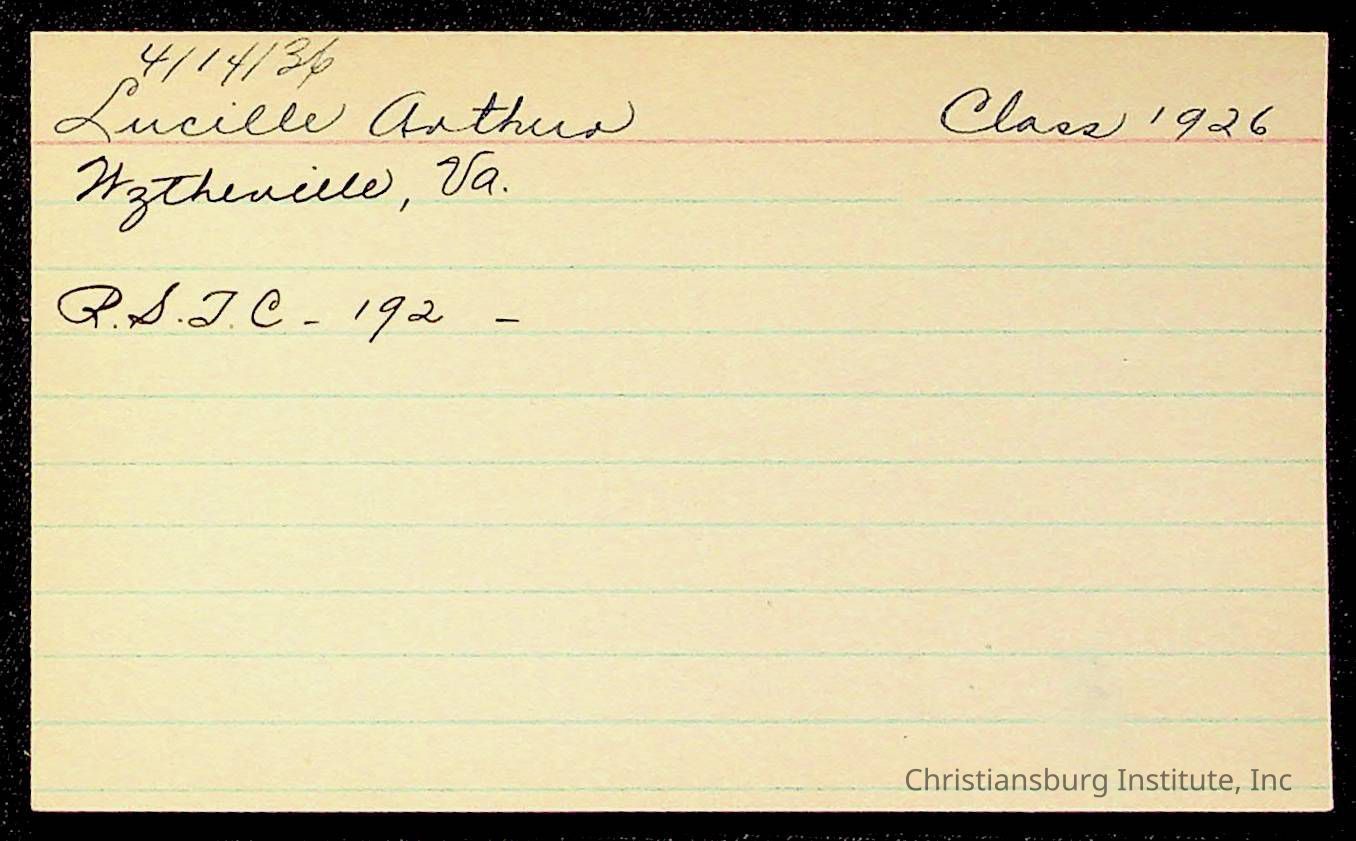 4/14/36
Lucille Arthur Class 1926
Wytheville, Va.
R.S.T.C - 192 -
Christiansburg Institute, Inc